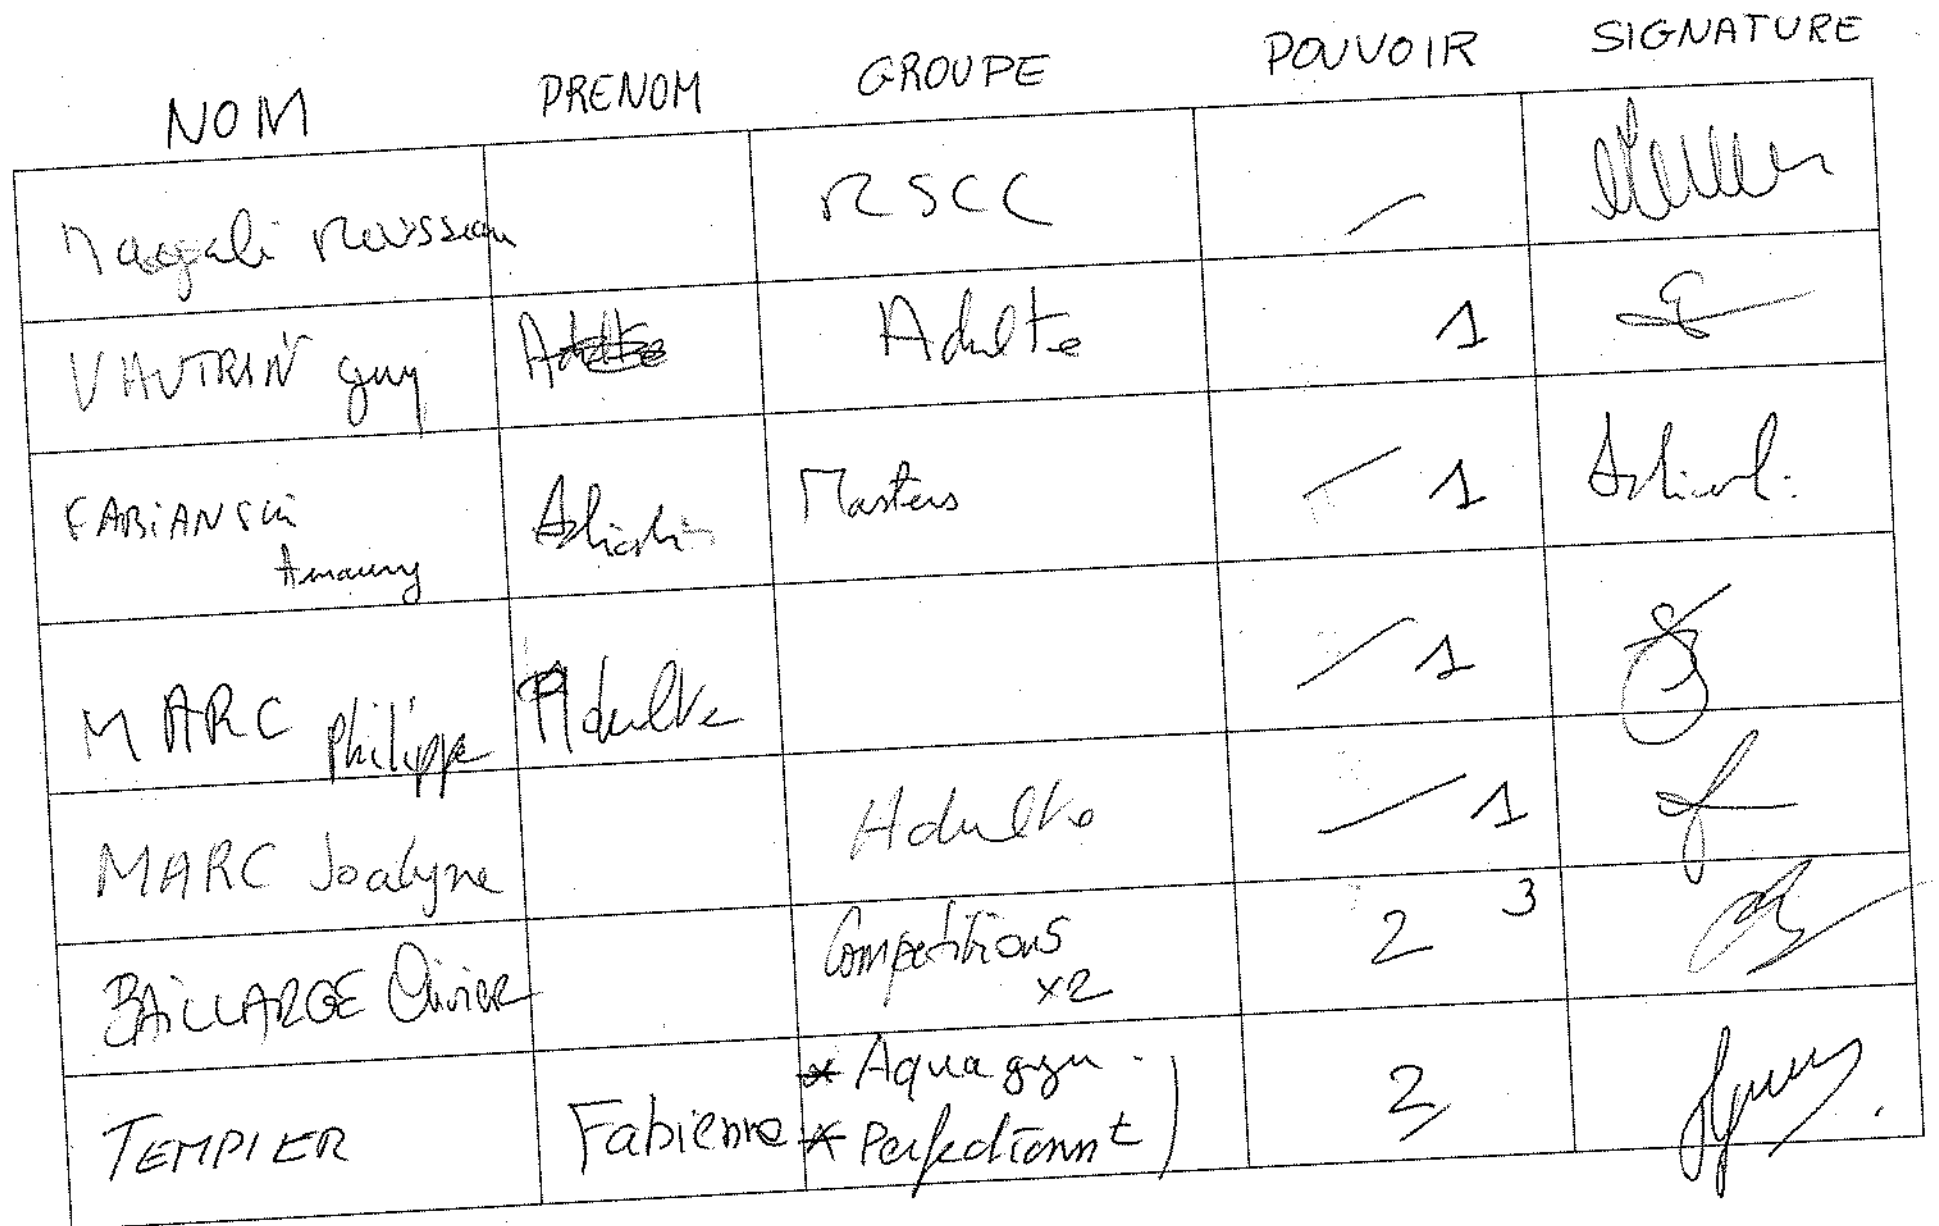 NOM PRENOM GROUPE POUVOIR SIGNATURE
Magali Rousseau RSCC —
VAUTRIN Guy Adulte Adulte 1
FABIANSKI Masters — 1
Amaury
MARC Philippe Adulte — 1
MARC Jocelyne Adulte — 1
BAILLARGE Olivier Competitions 2 3
x2
TEMPIER Fabienne * Aquagym. 2
* Perfectionnt )